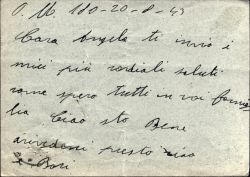 P. M. 180-20-8-43
Cara Angela ti invio i
miei più cordiali saluti
come spero tutti in voi famig
lia Ciao sto Bene
arivederci presto ciao
Bori